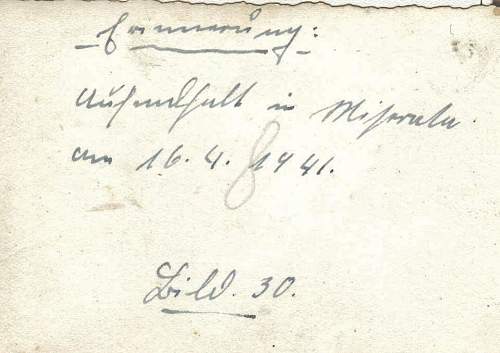 - Erinnerung: -
Aufenthalt in Misurata
am 16. 4. 1941.
8
Bild. 30.